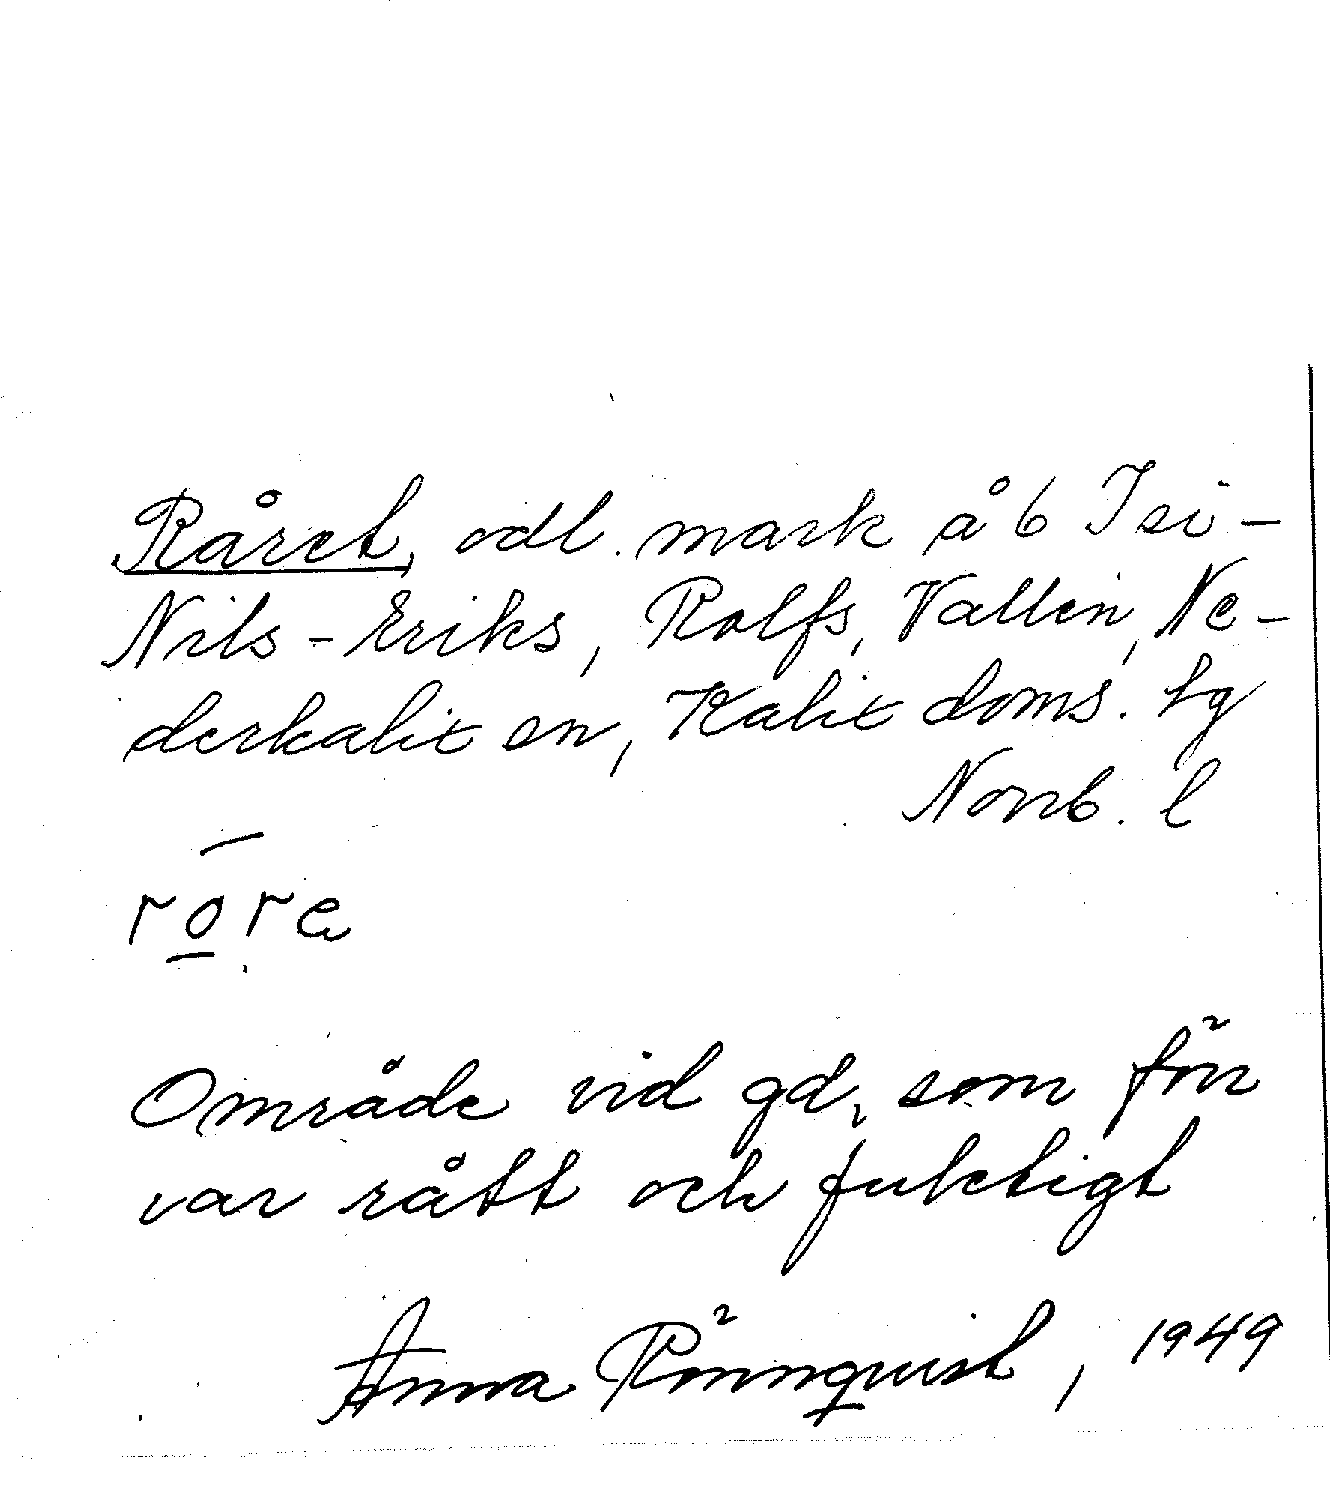 Råret, odl. mark å 6 Isi-
Nils-Eriks, Rolfs, Vallen, Ne-
derkalix sn, Kalix doms. tg
Norrb. l
rōre
Område vid gd, som förr
var rått och fuktigt
Anna Rönnquist, 1949